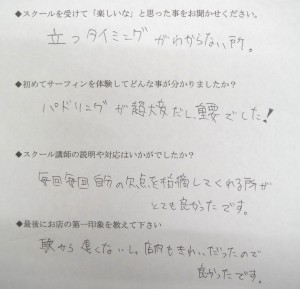 ◆スクールを受けて「楽しいな」と思った事をお聞かせください。
立つタイミングがわからない所。
◆初めてサーフィンを体験してどんな事が分かりましたか？
パドリングが超大変だし、重要でした！
◆スクール講師の説明や対応はいかがでしたか？
毎回毎回自分の欠点を指摘してくれる所が
とても良かったです。
◆最後にお店の第一印象を教えて下さい
駅から遠くないし。店内もきれいだったので
良かったです。